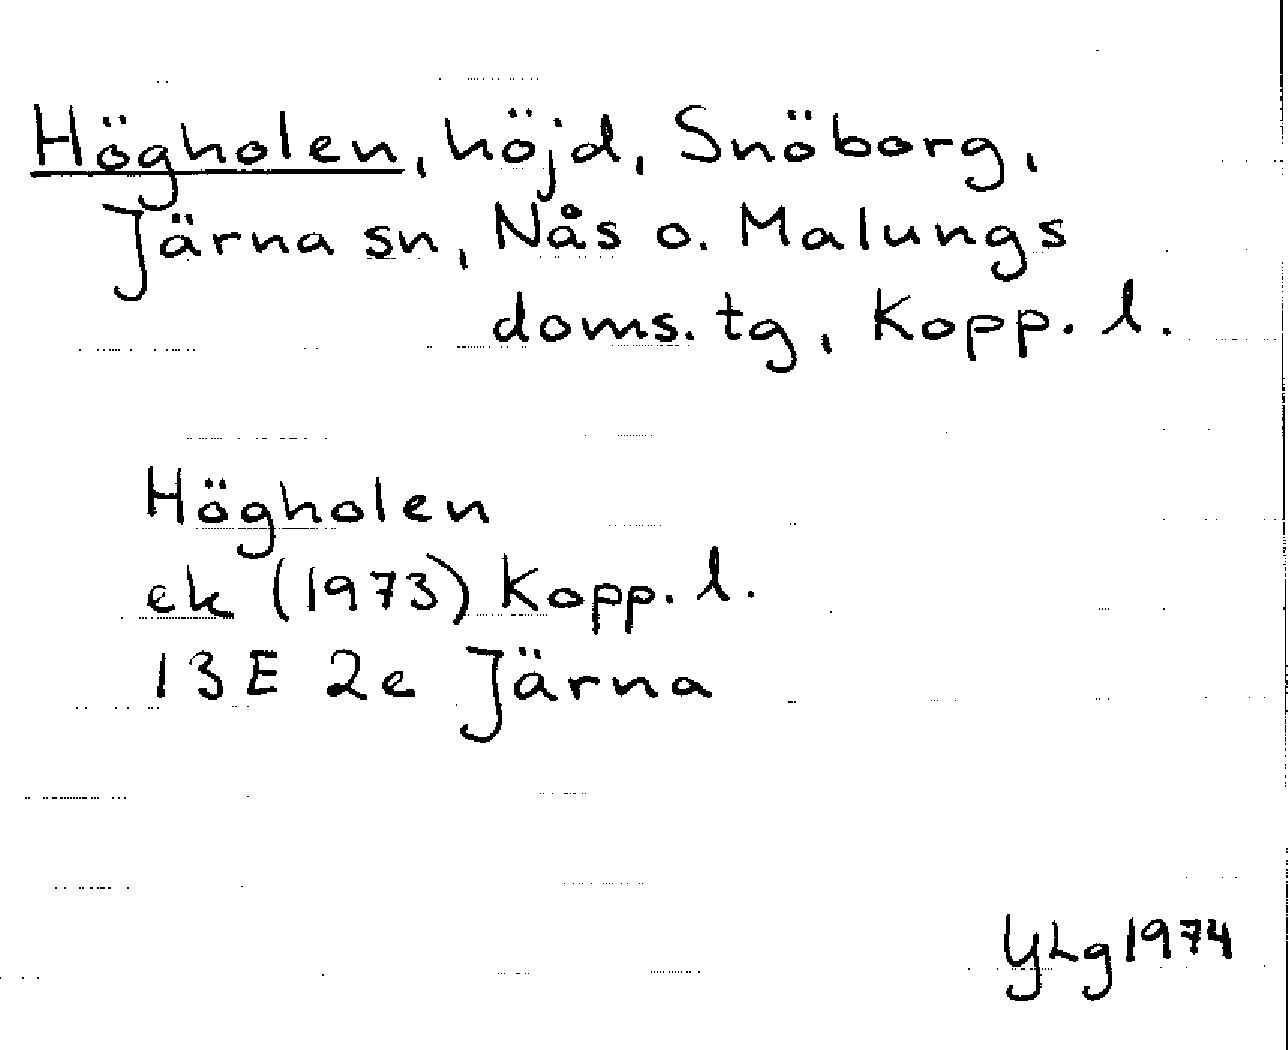 Högholen, höjd, Snöborg,
Järna sn, Nås o. Malungs
doms. tg, Kopp. l.
Högholen
ek (1973) Kopp. l.
13E 2e Järna
YLg 1974